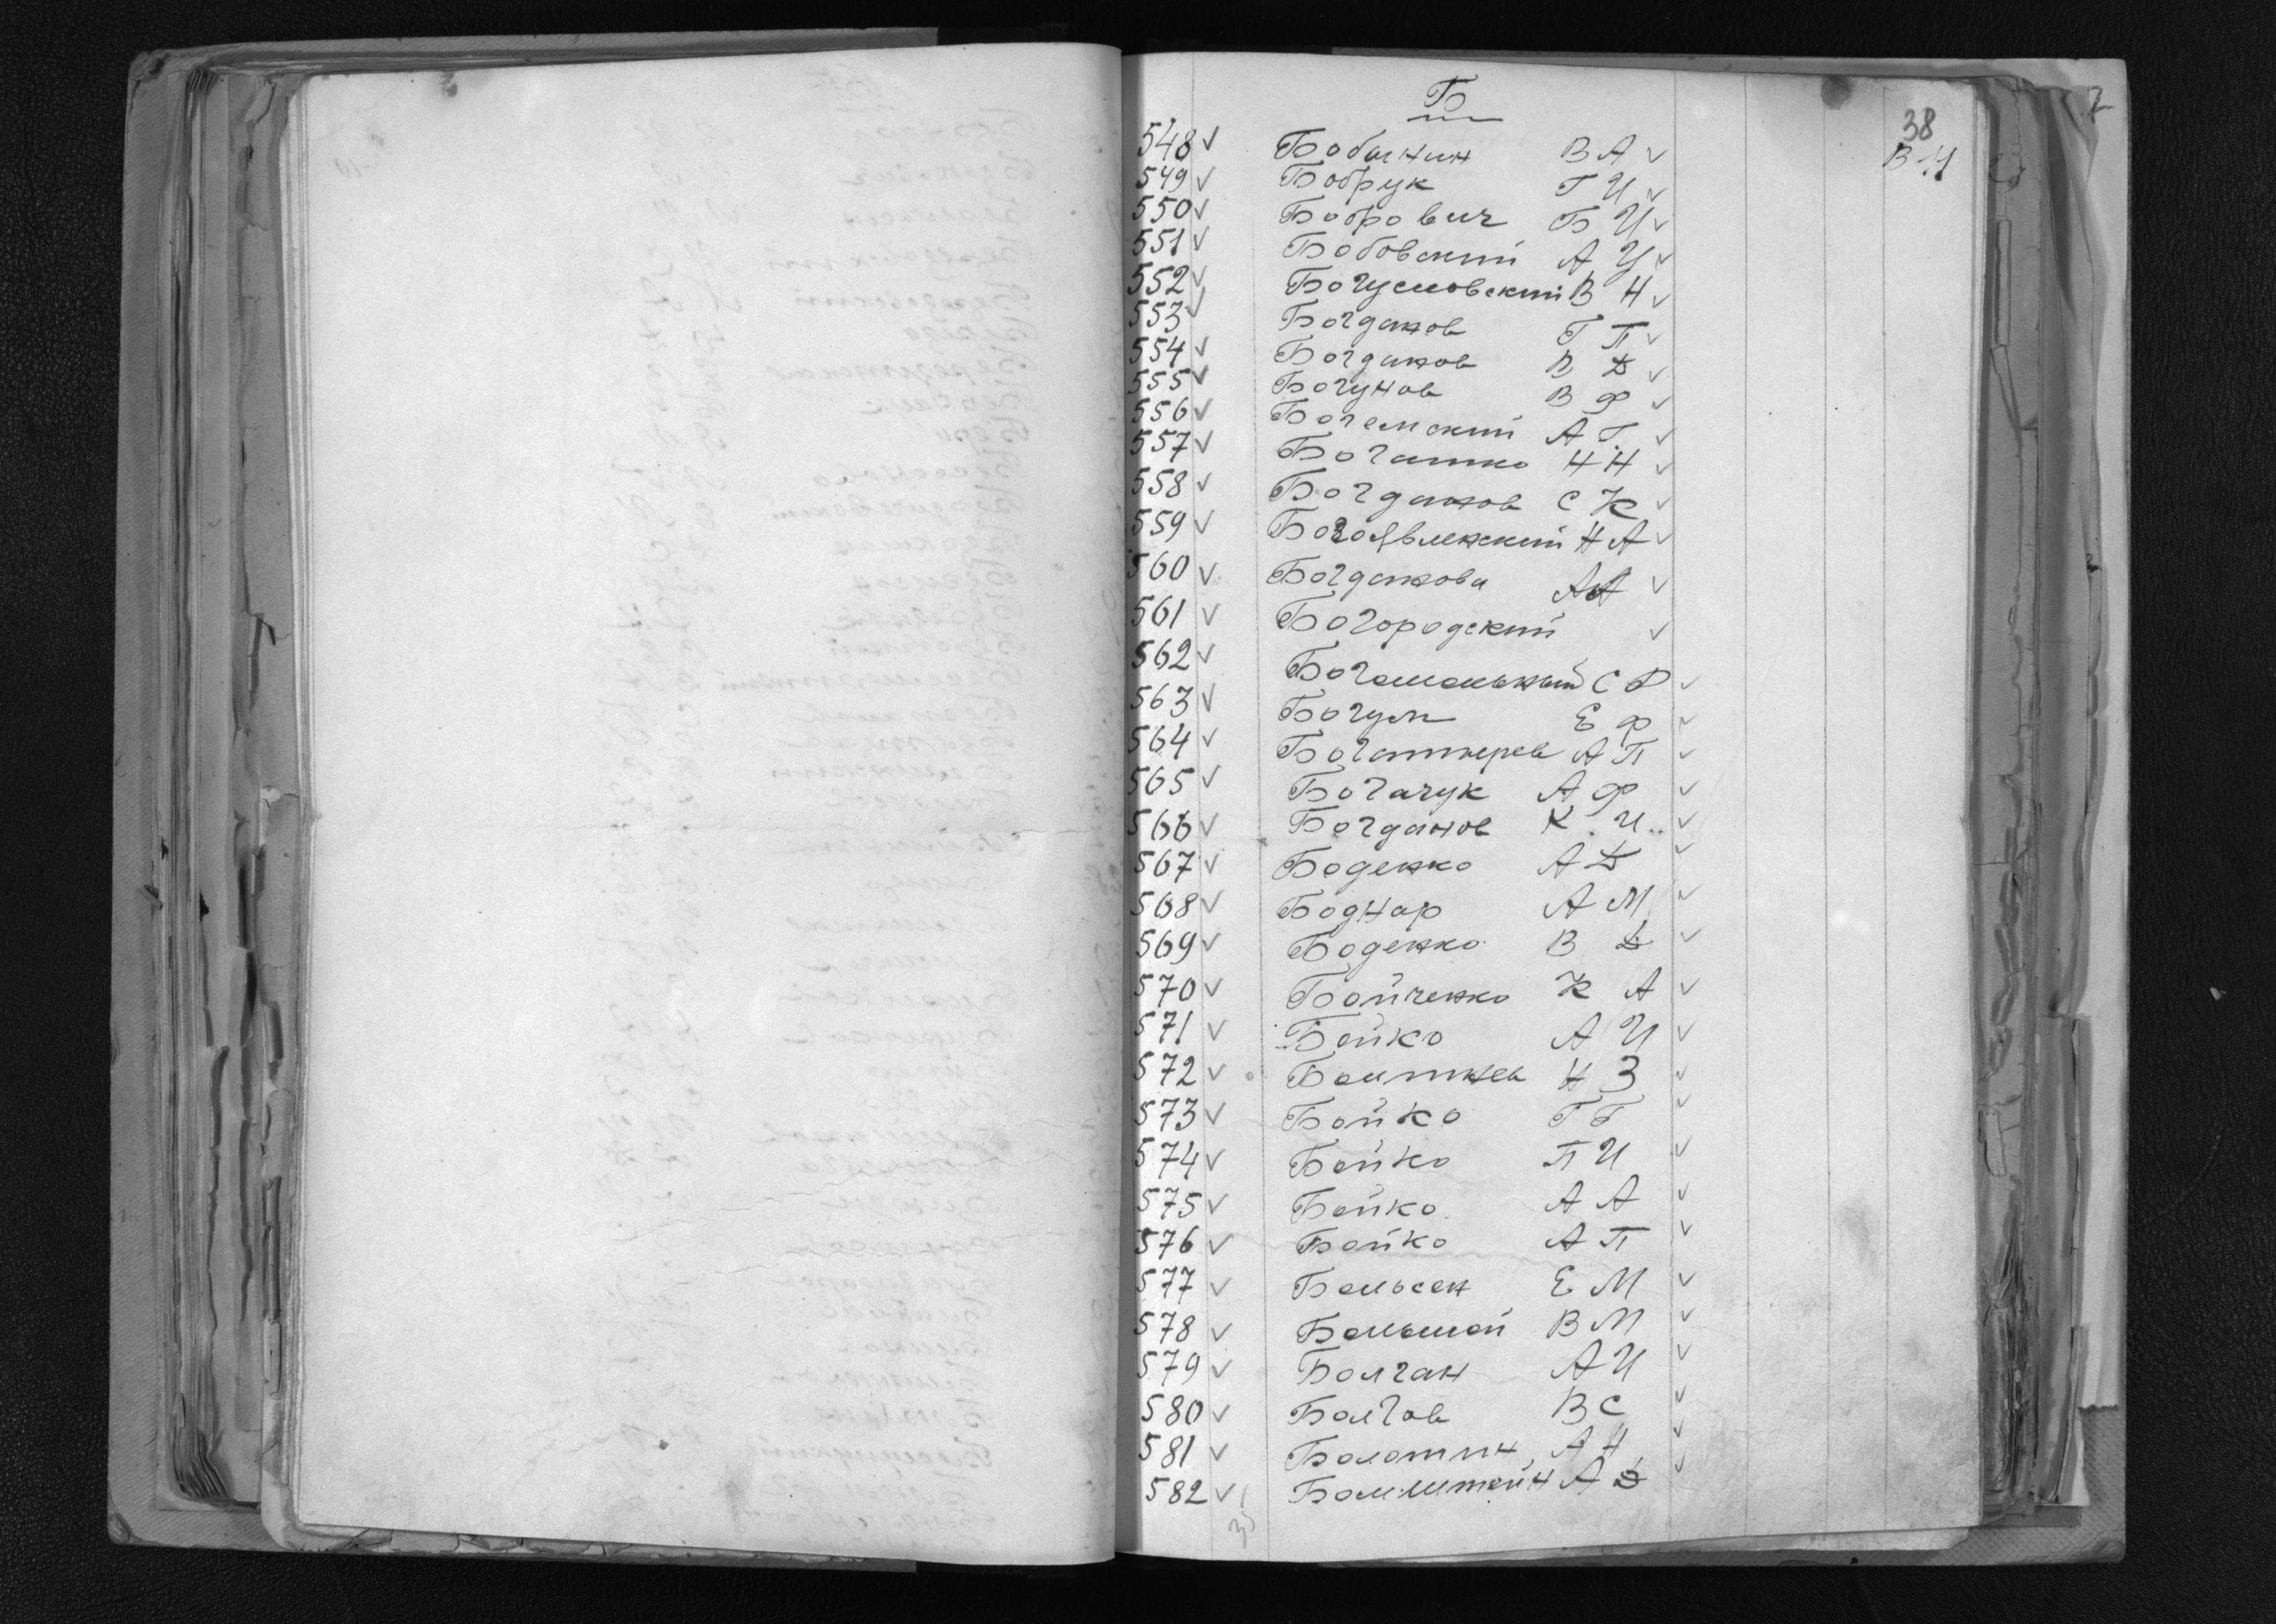 Б
38
В И
548 ✓ Бабынин В А ✓
549 ✓ Бобрук Г И ✓
550 ✓ Бобрович Б И ✓
551 ✓ Бобовский А И ✓
552 ✓ Богуславский В Н ✓
553 ✓ Богданов Г П ✓
554 ✓ Богданов В Д ✓
555 ✓ Богунов В Ф ✓
556 ✓ Богемский А Г. ✓
557 ✓ Богатко Н Н ✓
558 ✓ Богданов С К ✓
559 ✓ Богоявленский Н А ✓
560 ✓ Богданова А А ✓
561 ✓ Богородский ✓
562 ✓ С Ф ✓
563 ✓ Богум Е Ф ✓
564 ✓ Богатырев А П ✓
565 ✓ Богачук А Ф ✓
566 ✓ Богданов К. И. ✓
567 ✓ Боденко А Д ✓
568 ✓ Боднар А М ✓
569 ✓ Боденко В Д ✓
570 ✓ Бойченко К А ✓
571 ✓ Бойко А И ✓
572 ✓ Н З ✓
573 ✓ Бойко Г Г ✓
574 ✓ Бойко П И ✓
575 ✓ Бойко А А ✓
576 ✓ Бойко А П ✓
577 ✓ Бальсен Е М ✓
578 ✓ Большой В М ✓
579 ✓ Болган А И ✓
580 ✓ Болгов В С ✓
581 ✓ Болотин А Н ✓
582 ✓ Бомштейн А Д ✓
35